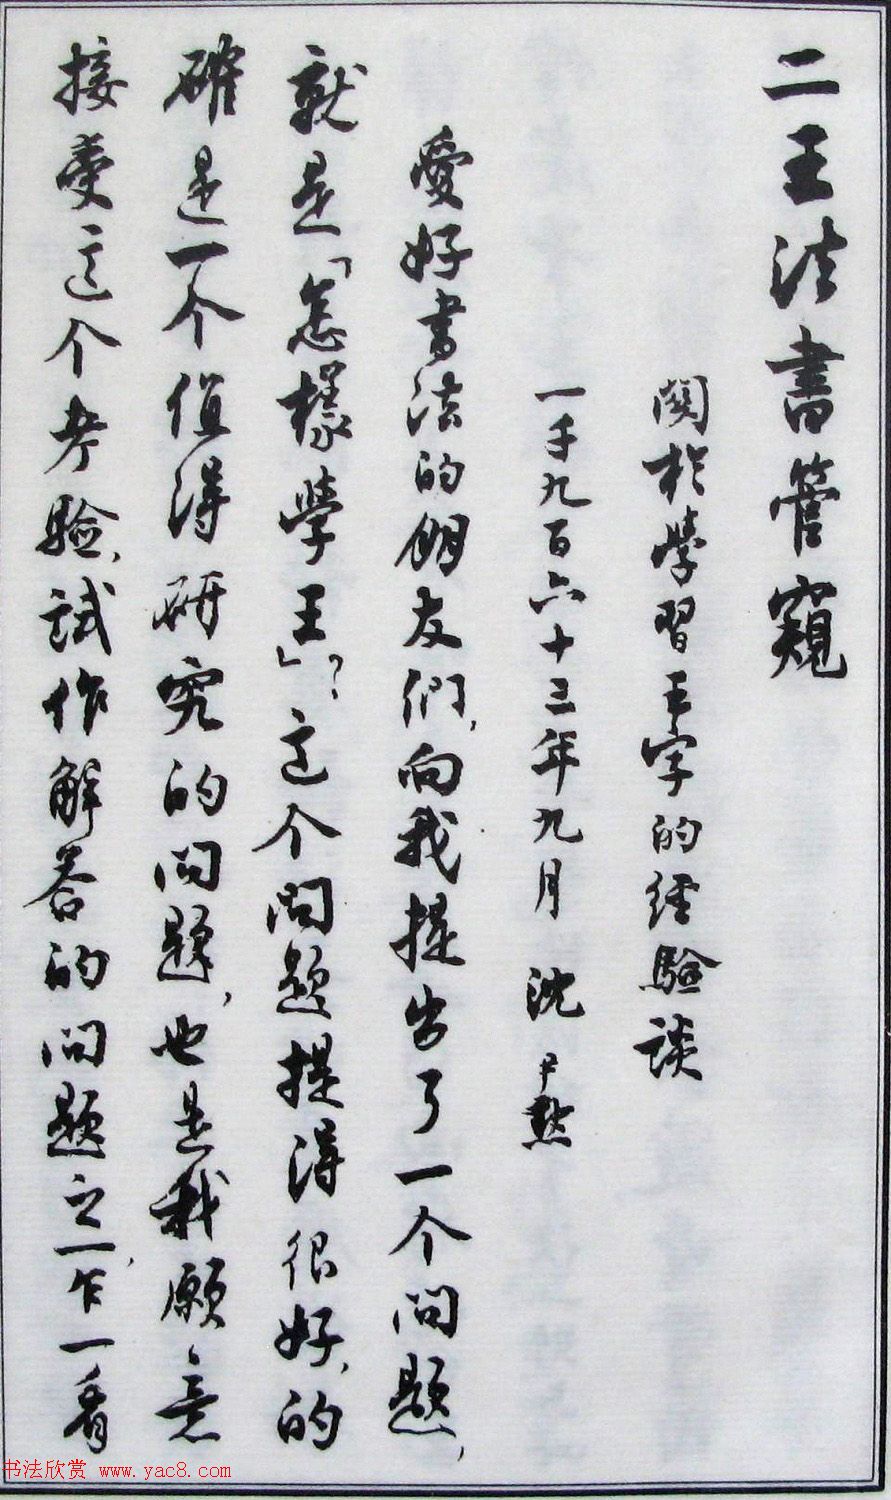 二王法書管窺
関於學習王字的經驗談
一千九百六十三年九月 沈尹默
愛好書法的朋友們,向我提出了一个问题,
就是「怎樣學王」?这个问题提得很好,的
確是一个值得研究的问题,也是我願意
接受这个考驗,試作解答的问题之一,乍一看
书法欣赏 www.yac8.com